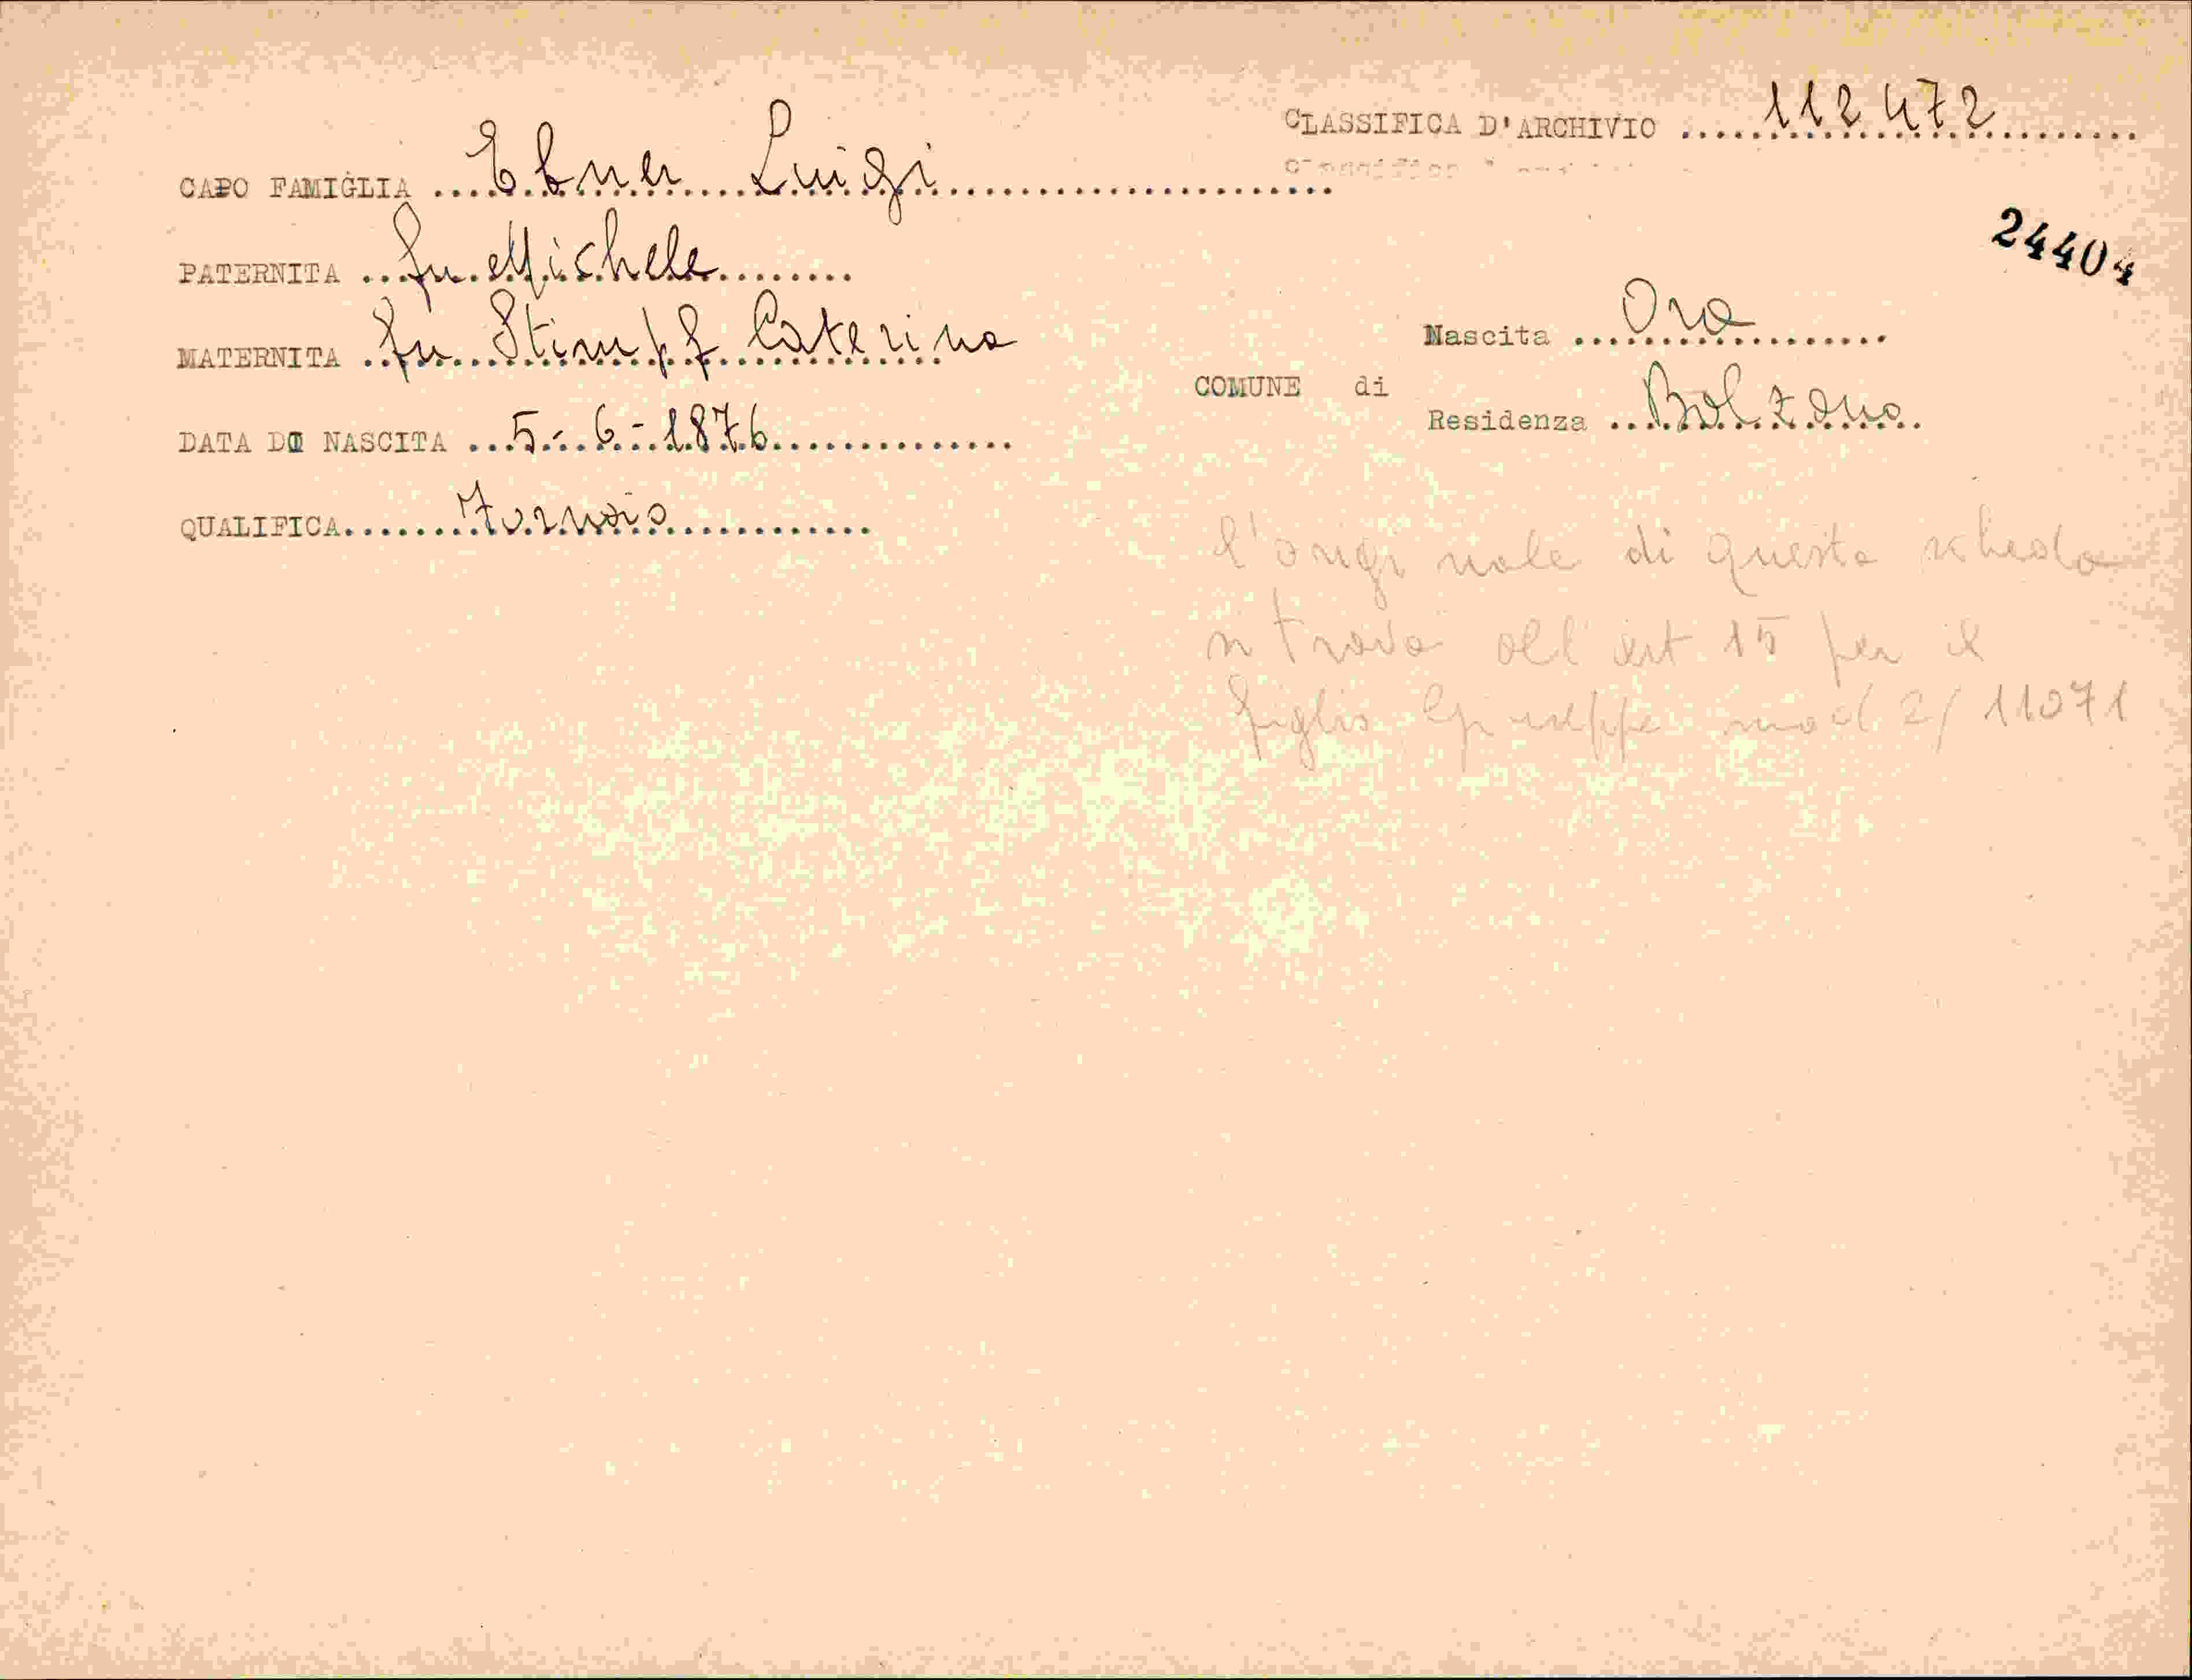 CLASSIFICA D'ARCHIVIO 112472
CAPO FAMIGLIA Ebner Luigi
24404
PATERNITA fu Michele
MATERNITA fu Stimpf Caterina
Nascita Ora
COMUNE di
Residenza Bolzano
DATA DI NASCITA 5-6-1876
QUALIFICA Fornaio
l'originale di questa scheda
si trova all' art. 15 per il
figlio Giuseppe mod 2/11071